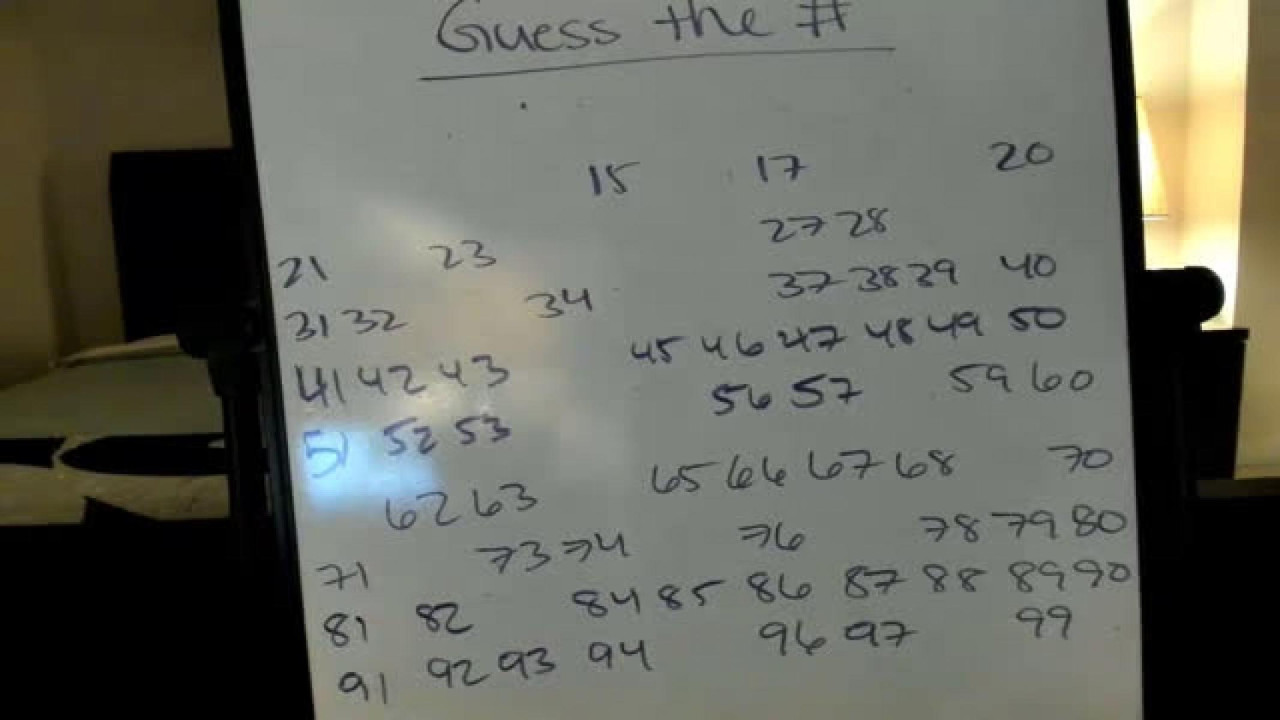 Guess the #
15 17 20
21 23 27 28
31 32 34 37 38 39 40
41 42 43 45 46 47 48 49 50
51 52 53 56 57 59 60
62 63 65 66 67 68 70
71 73 74 76 78 79 80
81 82 84 85 86 87 88 89 90
91 92 93 94 96 97 99